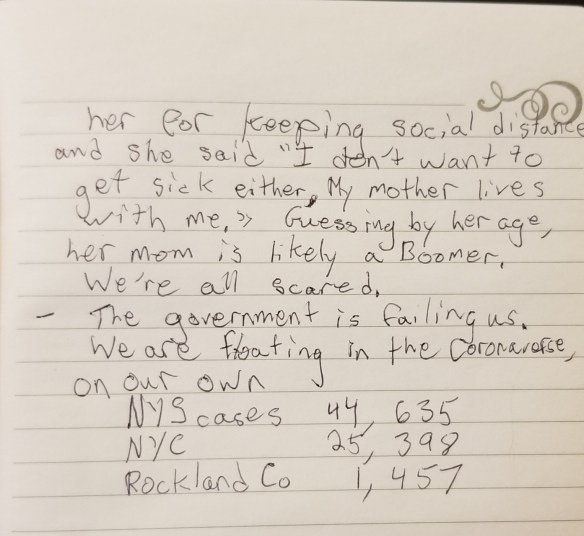 her for keeping social distance
and she said "I don't want to
get sick either. My mother lives
with me.>> Guessing by her age,
her mom is likely a Boomer.
We're all scared.
- The government is failing us.
We are floating in the Coronaverse,
on our own
NYS cases 44, 635
NYC 25, 398
Rockland Co 1, 457